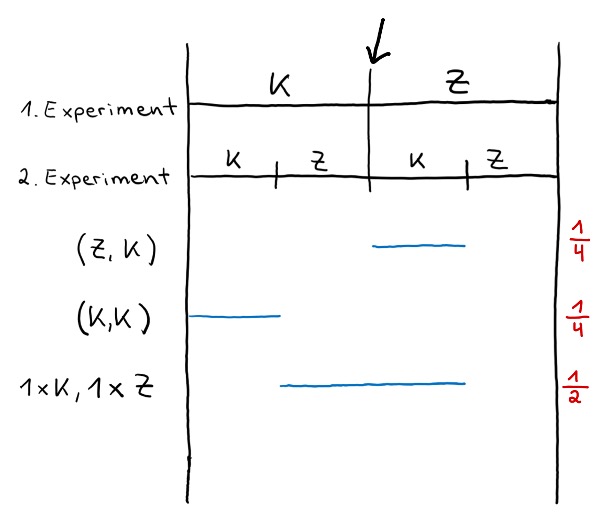 K Z
1. Experiment
K Z K Z
2. Experiment
(Z, K) 1/4
(K,K) 1/4
1×K, 1× Z 1/2